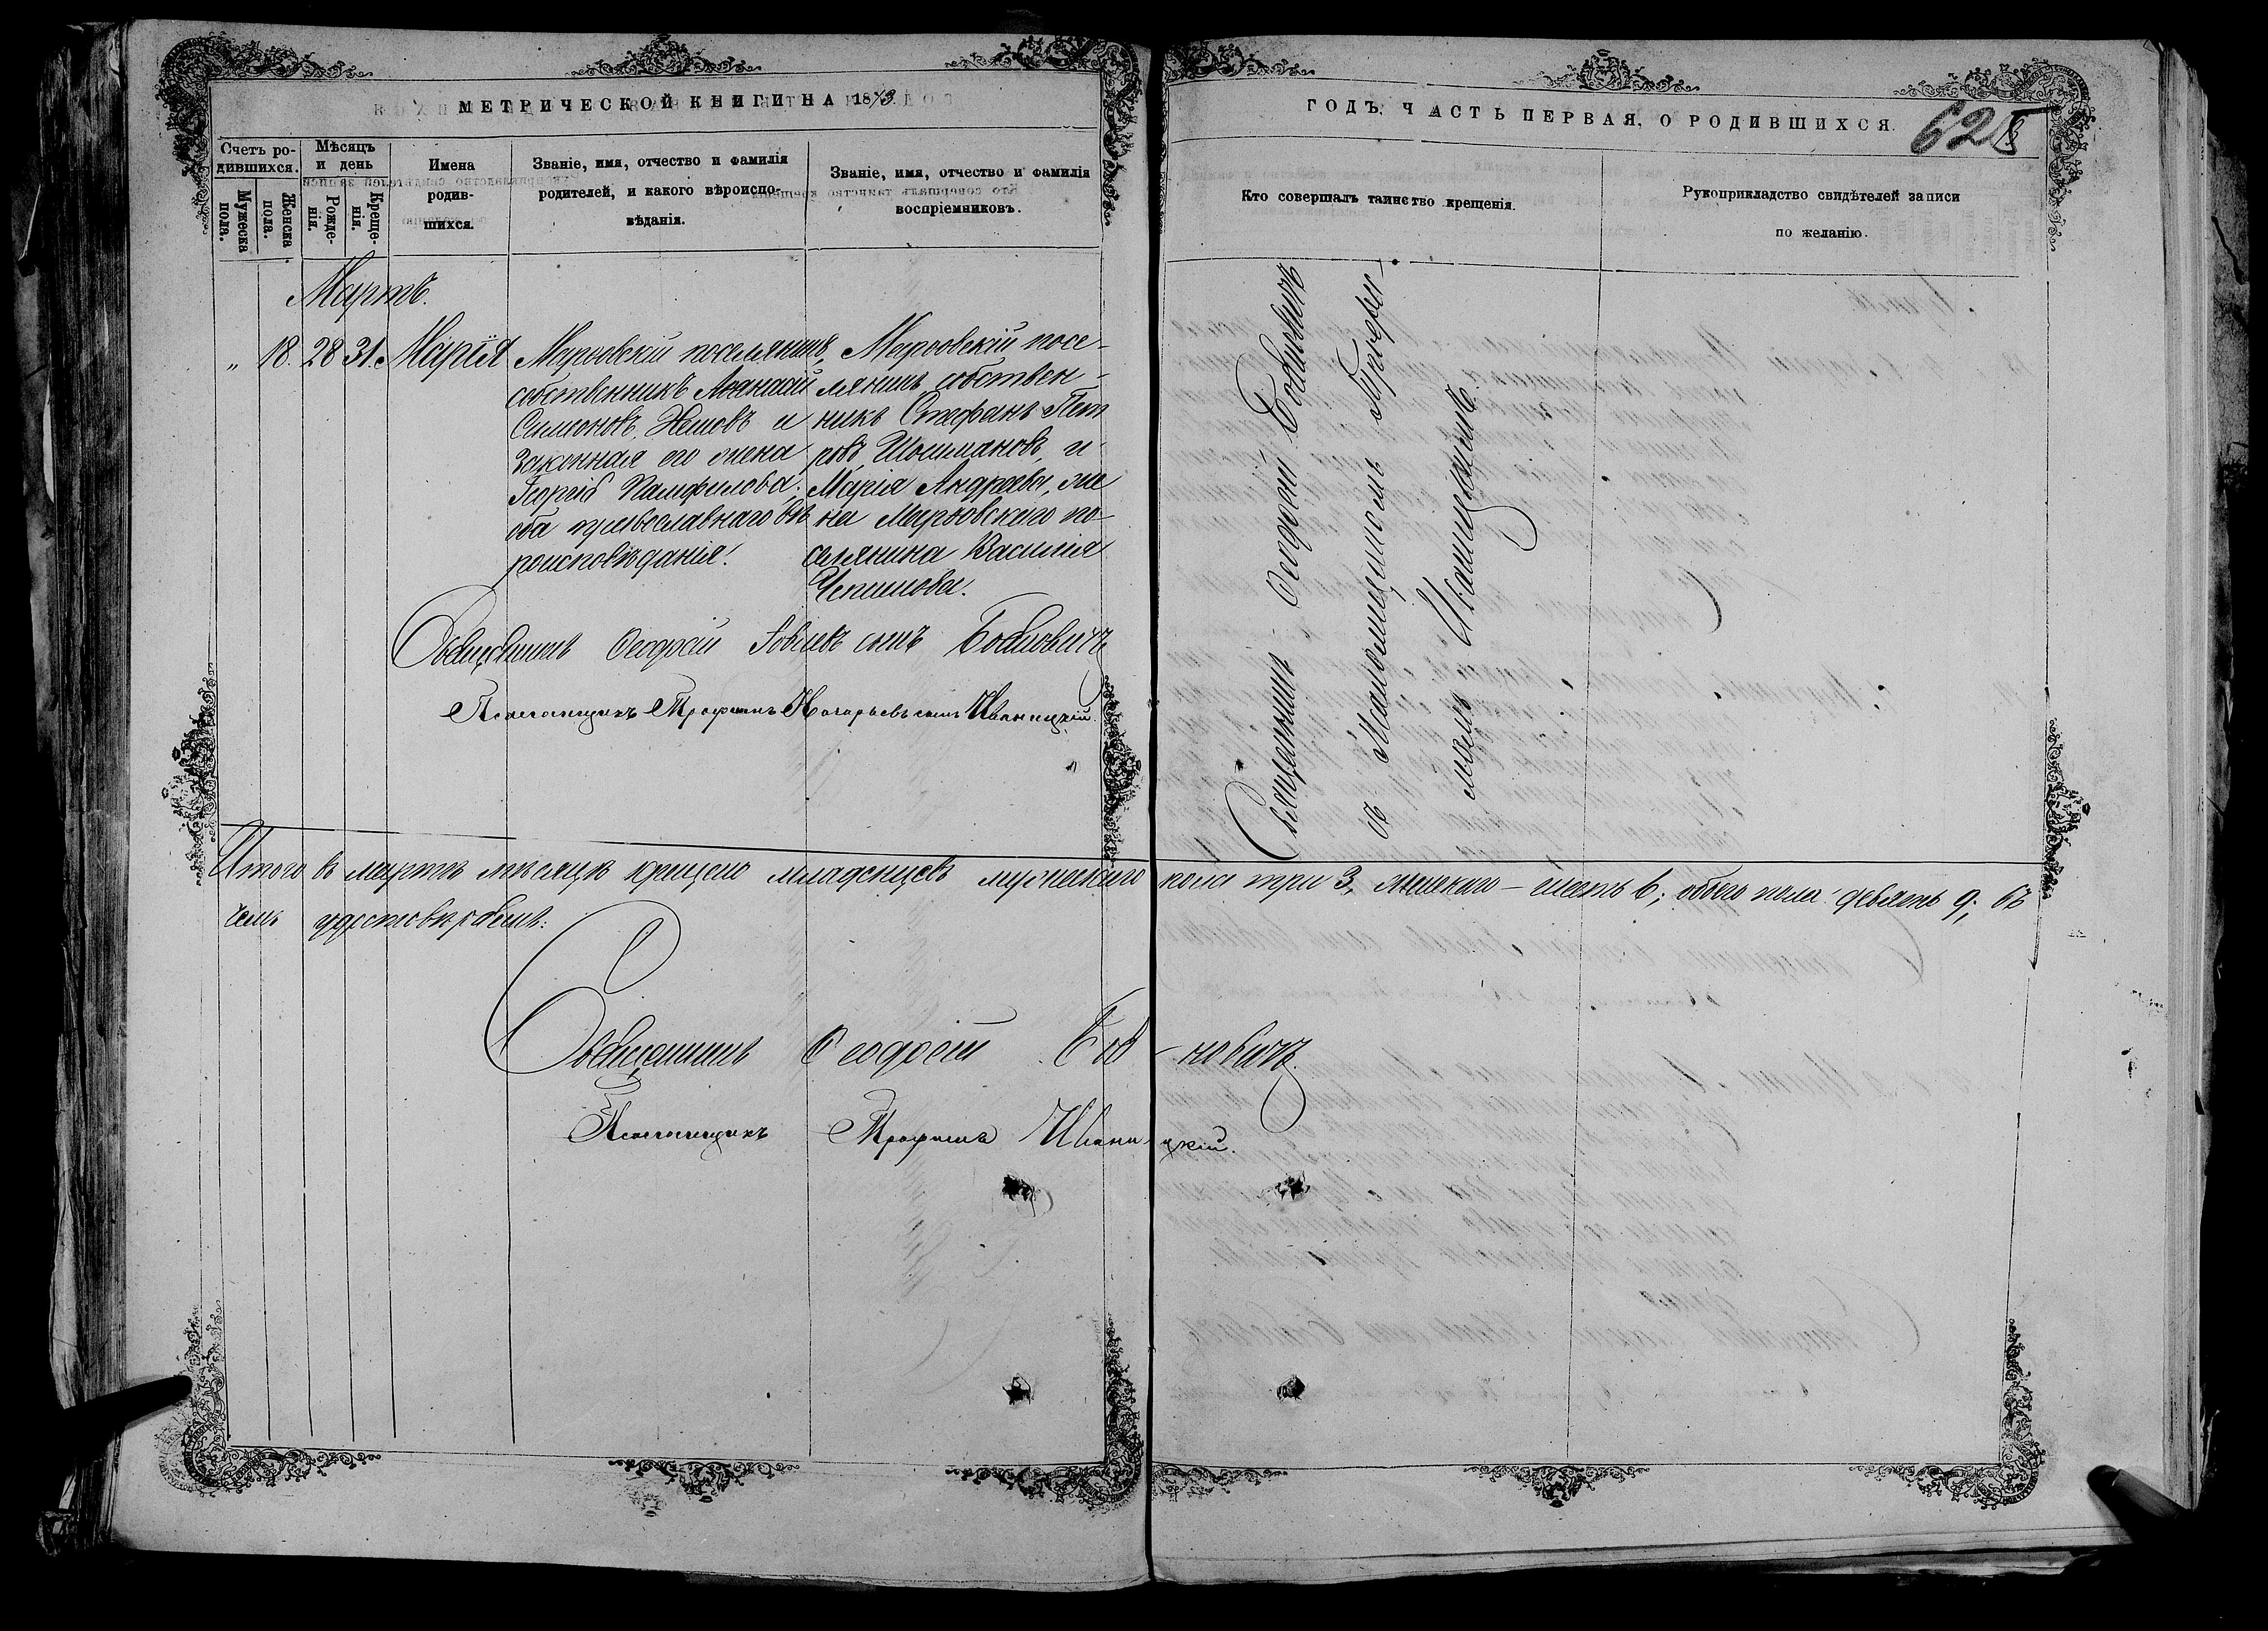 МЕТРИЧЕСКОЙ КНИГИ НА 1873
ГОДЪ, ЧАСТЬ ПЕРВАЯ, О РОДИВШИХСЯ.
62
Счетъ ро-
дившихся.
Мужеска
пола.
Женска
пола.
Мѣсяцъ
и день
Рожде-
нія.
Креще-
нія.
Имена
родив-
шихся.
Званіе, имя, отчество и фамилія
родителей, и какого вѣроиспо-
вѣданія.
Званіе, имя, отчество и фамилія
воспріемниковъ.
Кто совершалъ таинство крещенія.
Рукоприкладство свидѣтелей записи
по желанію.
Мартъ.
" 18. 28 31. Марія
поселянинъ
собственникъ Аѳанасій
Симеоновъ и
законная его жена
Георгія Памфилова,
оба православнаго вѣ
роисповѣданія.
посе-
лянинъ собствен-
никъ Стефанъ Пет
ровъ и
Марія Андреева, же
на по-
селянина Василія
Чекишова.
Священникъ Ѳеодосій Іовлевъ сынъ
Псаломщикъ Трофимъ сынъ Иваницкій.
Священникъ Ѳеодосій
съ Псаломщикомъ Трофи-
момъ Иваницкимъ.
Итого въ мартѣ мѣсяцѣ крещено младенцевъ мужескаго пола три 3, женскаго — шесть 6; обоего пола девять 9; въ
чемъ удостовѣряемъ:
Священникъ Ѳеодосій
Псаломщикъ Трофимъ Иваницкій.